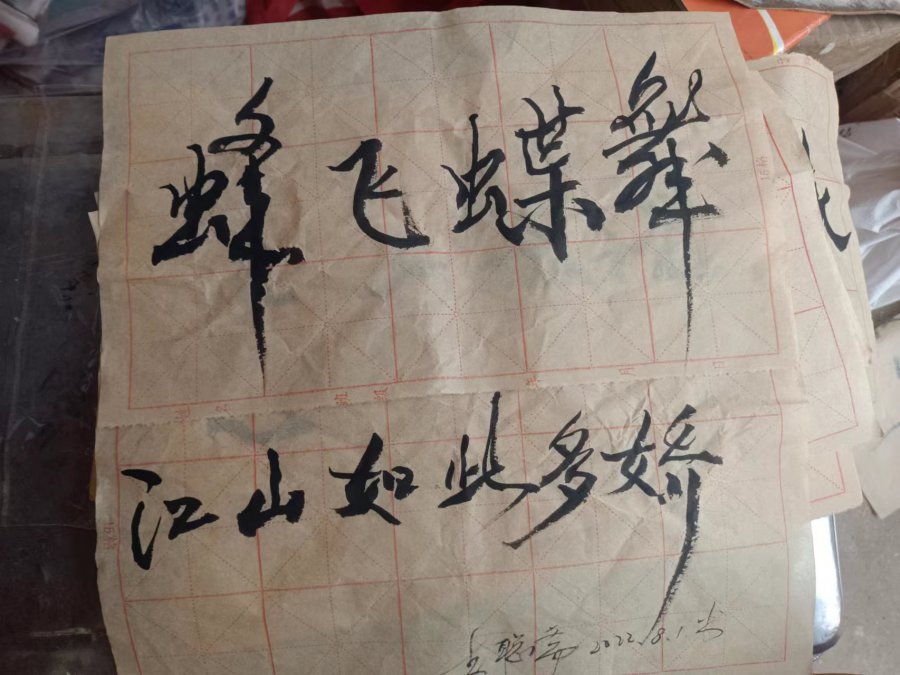 蜂飞蝶舞
江山如此多娇
2022.8.1